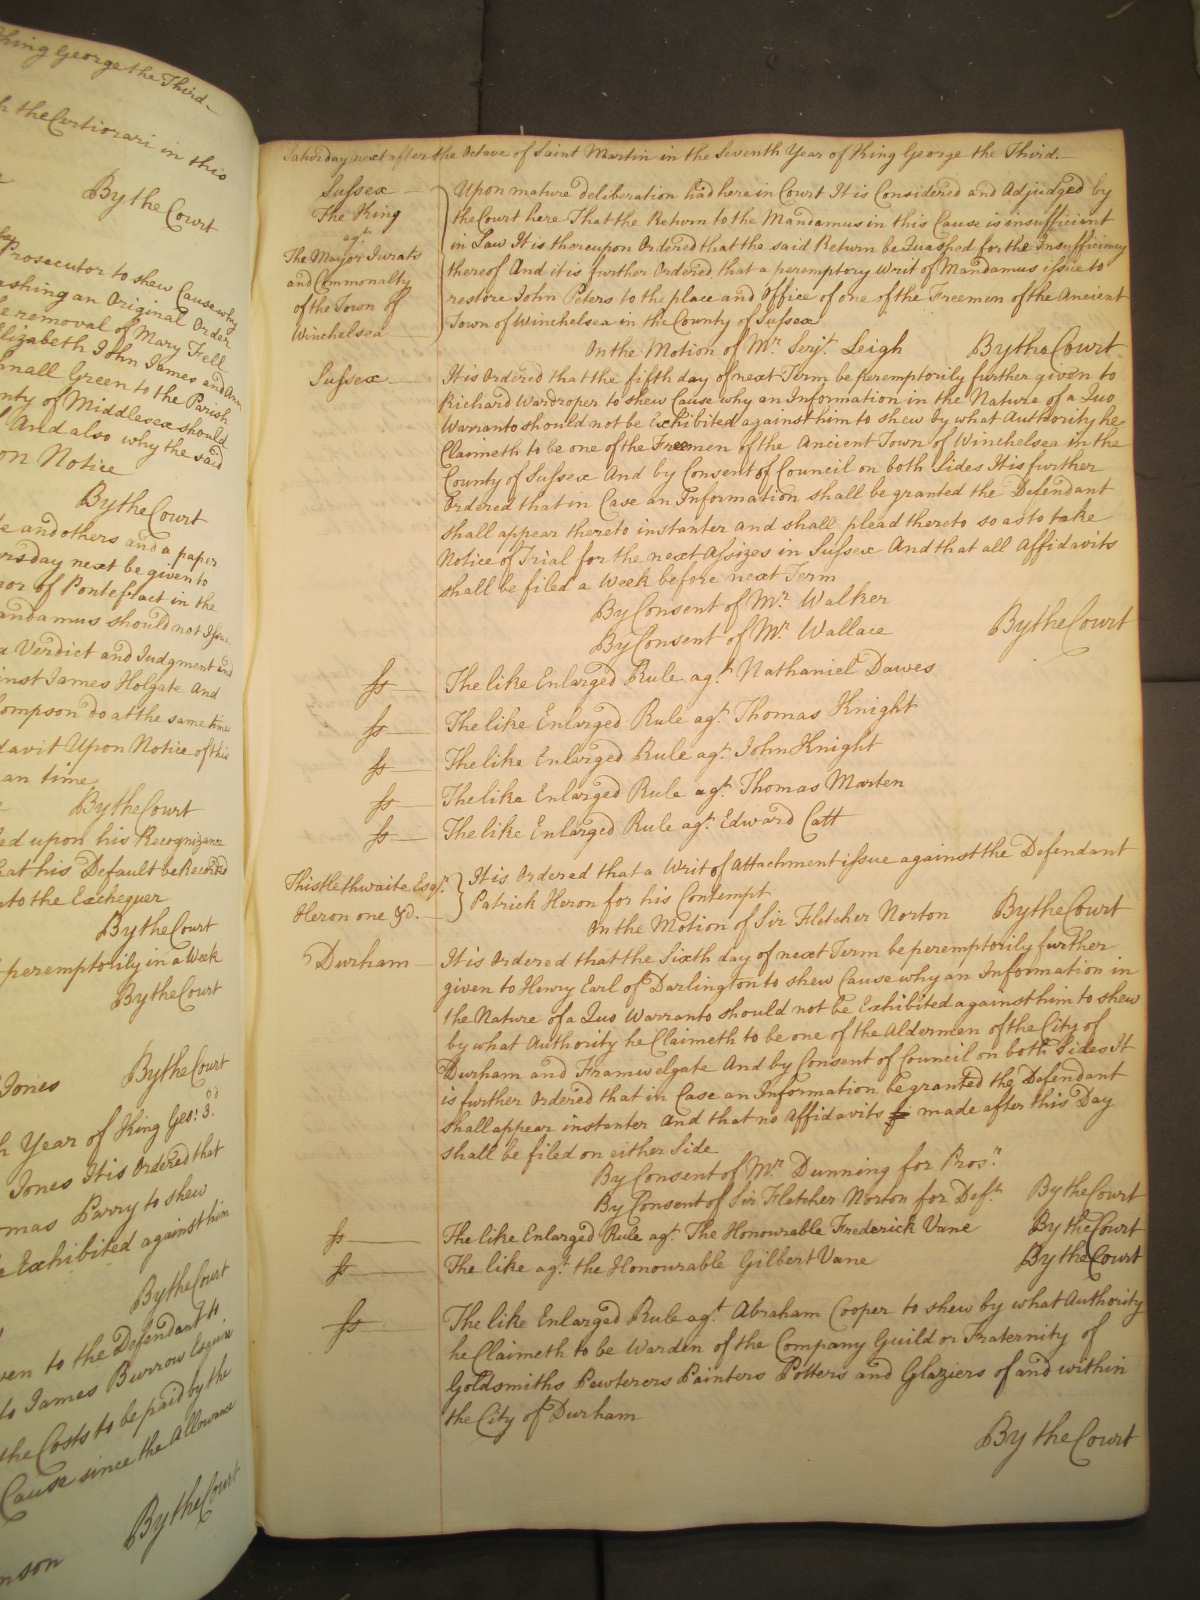 King George the Third
h the Certiorari in this
By the Court
Prosecutor to shew Cause why
ashing an Original Order
e removal of Mary Fell
Elizabeth John James and Ann
mall Green to the Parish
nty of Middlesex should
And also why the said
on Notice
By the Court
le and others and a paper
rsday next be given to
nor of Pontefract in the
andamus should not Issue
a Verdict and Judgment and
inst James Holgate And
ompson do at the same time
davit Upon Notice of this
an time
By the Court
ed upon his Recognizance
hat his Default be Recorded
nto the Exchequer
By the Court
peremptorily in a Week
By the Court
By the Court
Jones
h Year of King Geo: 3.d
Jones It is Ordered that
omas Parry to shew
e Exhibited against him
By the Court
ven to the Defendant to
to James Burrow Esquire
the Costs to be paid by the
Cause since the Allowance
By the Court
nson
Saturday next after the Octave of Saint Martin in the Seventh Year of King George the Third.
Sussex
The King
agt.
The Mayor Jurats
and Commonalty
of the Town of
Winchelsea
Upon mature deliberation had here in Court It is Considered and Adjudged by
the Court here That the Return to the Mandamus in this Cause is insufficient
in Law It is thereupon Ordered that the said Return be Quashed for the Insufficiency
thereof And it is further Ordered that a peremptory Writ of Mandamus issue to
restore John Peters to the place and Office of one of the Freemen of the Ancient
Town of Winchelsea in the County of Sussex
On the Motion of Mr. Serjt. Leigh By the Court
Sussex It is Ordered that the fifth day of next Term be peremptorily further given to
Richard Wardroper to shew Cause why an Information in the Nature of a Quo
Warranto should not be Exhibited against him to shew by what Authority he
Claimeth to be one of the Freemen of the Ancient Town of Winchelsea in the
County of Sussex And by Consent of Council on both Sides It is further
Ordered that in Case an Information shall be granted the Defendant
shall appear thereto instanter and shall plead thereto so as to take
Notice of Trial for the next Assizes in Sussex And that all Affidavits
shall be filed a Week before next Term
By Consent of Mr. Walker
By Consent of Mr. Wallace By the Court
ss The like Enlarged Rule agt. Nathaniel Dawes
ss The like Enlarged Rule agt. Thomas Knight
ss The like Enlarged Rule agt. John Knight
ss The like Enlarged Rule agt. Thomas Marten
ss The like Enlarged Rule agt. Edward Catt
Thistlethwaite Esqr.
Heron one &c.
It is Ordered that a Writ of Attachment issue against the Defendant
Patrick Heron for his Contempt
On the Motion of Sir Fletcher Norton By the Court
Durham It is Ordered that the Sixth day of next Term be peremptorily further
given to Henry Earl of Darlington to shew Cause why an Information in
the Nature of a Quo Warranto should not be Exhibited against him to shew
by what Authority he Claimeth to be one of the Aldermen of the City of
Durham and Framwelgate And by Consent of Council on both Sides It
is further Ordered that in Case an Information be granted the Defendant
shall appear instanter And that no Affidavits made after this Day
shall be filed on either Side
By Consent of Mr. Dunning for Pros.r
By Consent of Sir Fletcher Norton for Deft. By the Court
ss The like Enlarged Rule agt. The Honourable Frederick Vane By the Court
ss The like agt. the Honourable Gilbert Vane By the Court
ss The like Enlarged Rule agt. Abraham Cooper to shew by what Authority
he Claimeth to be Warden of the Company Guild or Fraternity of
Goldsmiths Pewterers Painters Potters and Glaziers of and within
the City of Durham
By the Court